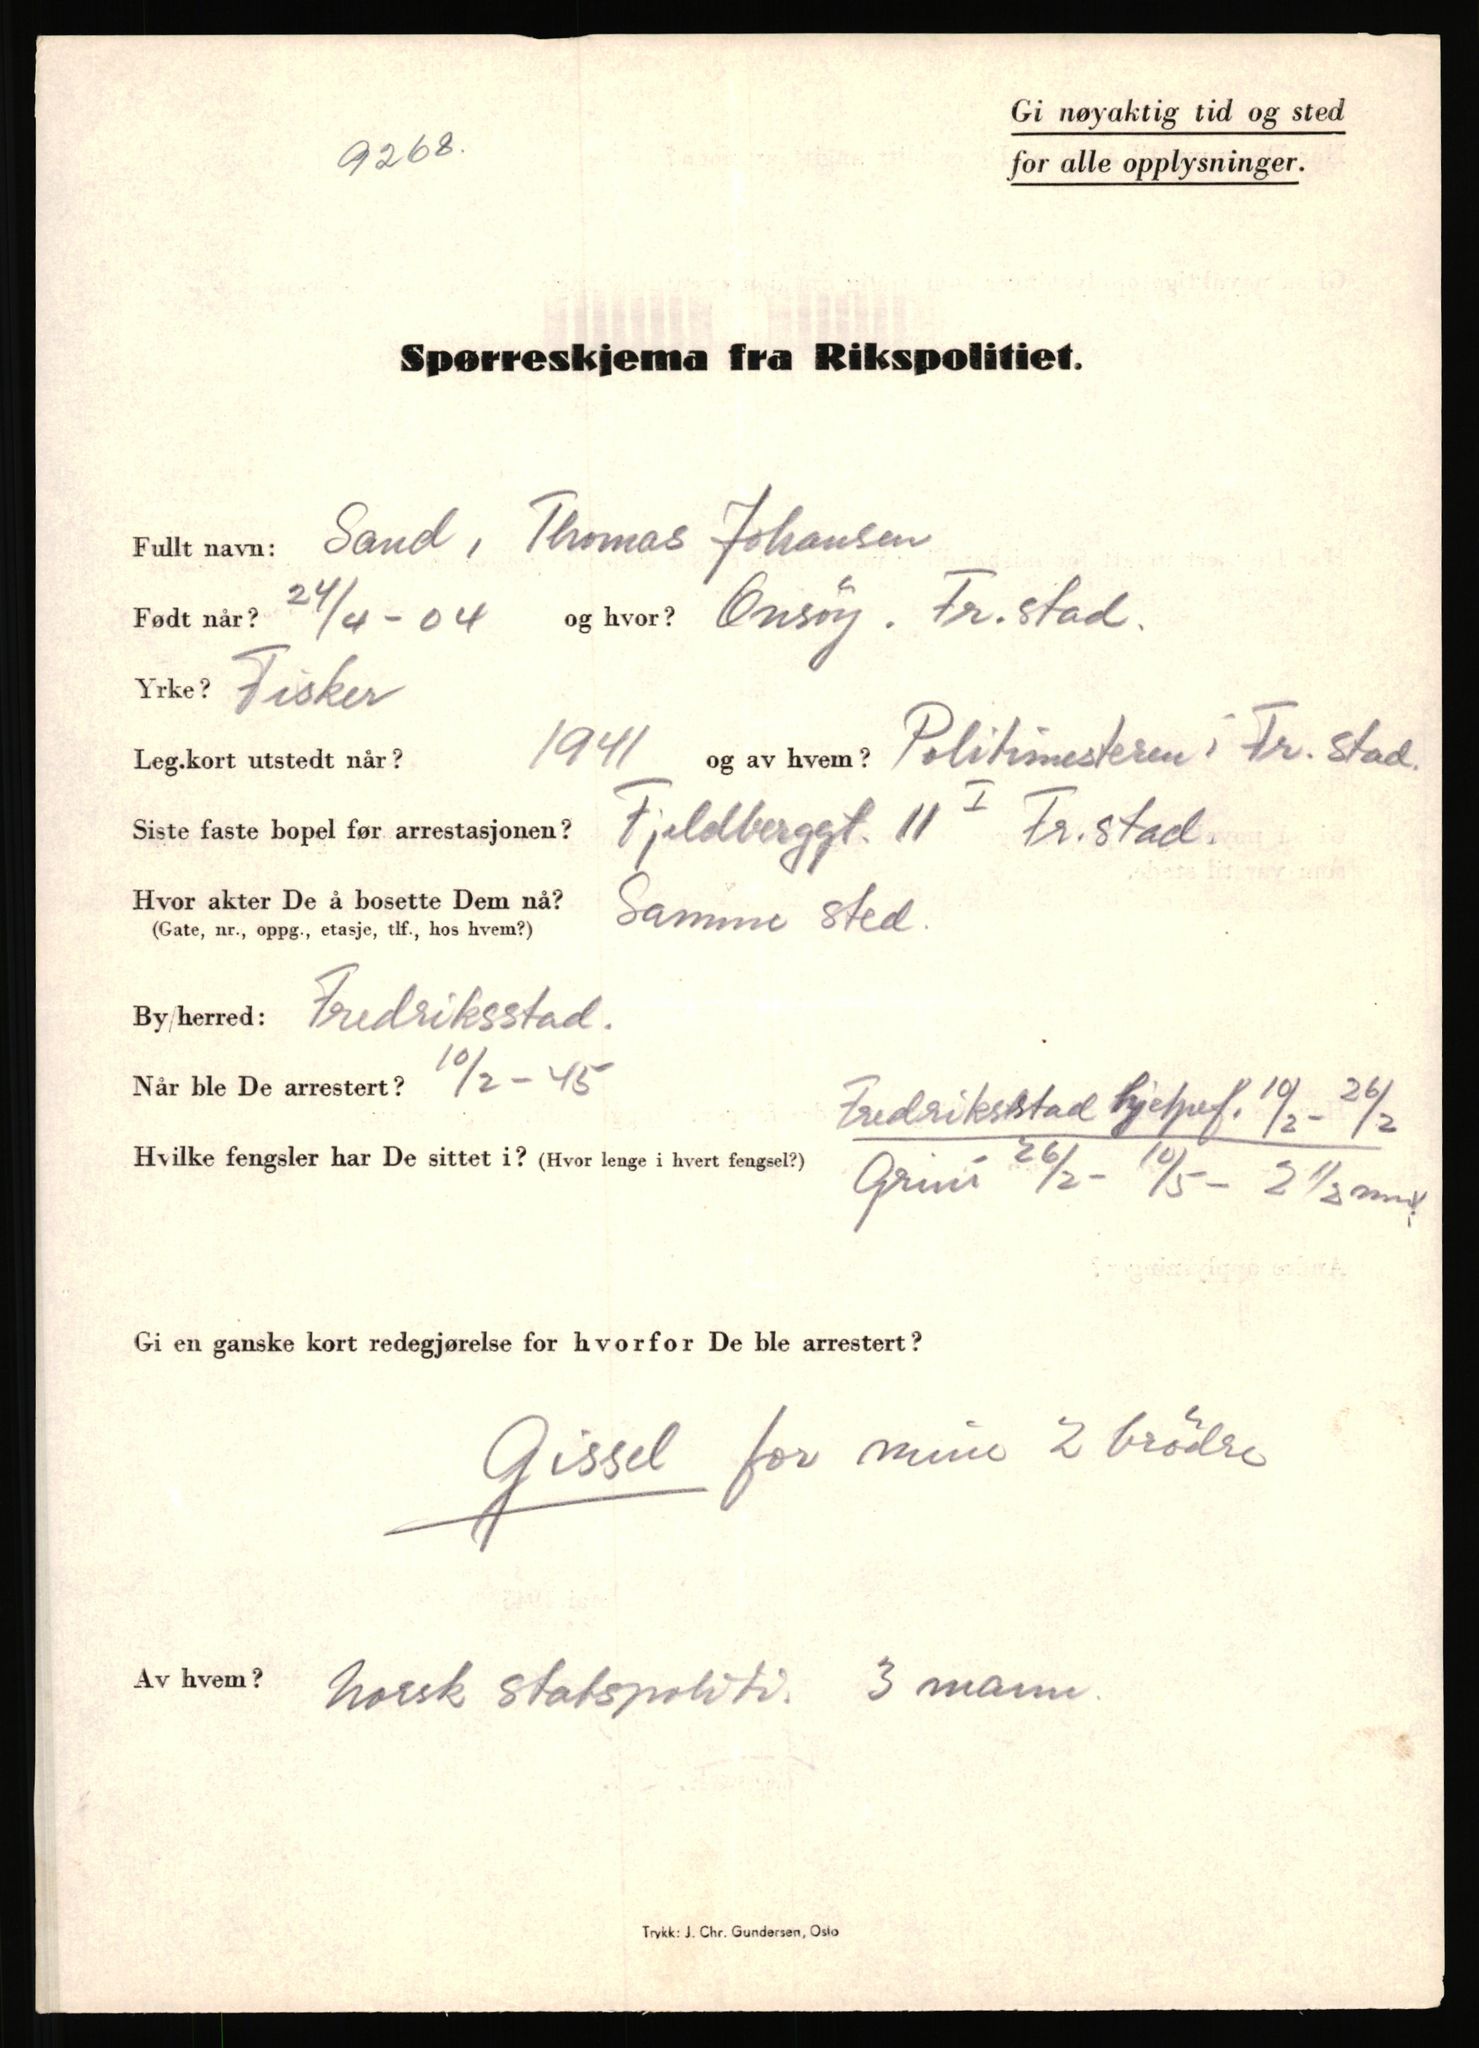 Gi nøyaktig tid og sted
for alle opplysninger.
9268.
Spørreskjema fra Rikspolitiet.
Fullt navn: Sand, Thomas Johansen
Født når? 24/4-04 og hvor? Onsöy. Fr.stad.
Yrke? Fisker
Leg.kort utstedt når? 1941 og av hvem? Politimesteren i Fr.stad.
Siste faste bopel før arrestasjonen? Fjeldberggt. 11 I Fr.stad.
Hvor akter De å bosette Dem nå? Samme sted.
(Gate, nr., oppg., etasje, tlf., hos hvem?)
By/herred: Fredriksstad.
Når ble De arrestert? 10/2-45
Fredriksstad 10/2-26/2
Hvilke fengsler har De sittet i? (Hvor lenge i hvert fengsel?) Grini 26/2-10/5-2 1/2
Gi en ganske kort redegjørelse for hvorfor De ble arrestert?
Gissel for mine 2 brödre
Av hvem? Norsk statspoliti. 3 mann.
Trykk: J. Chr. Gundersen, Oslo